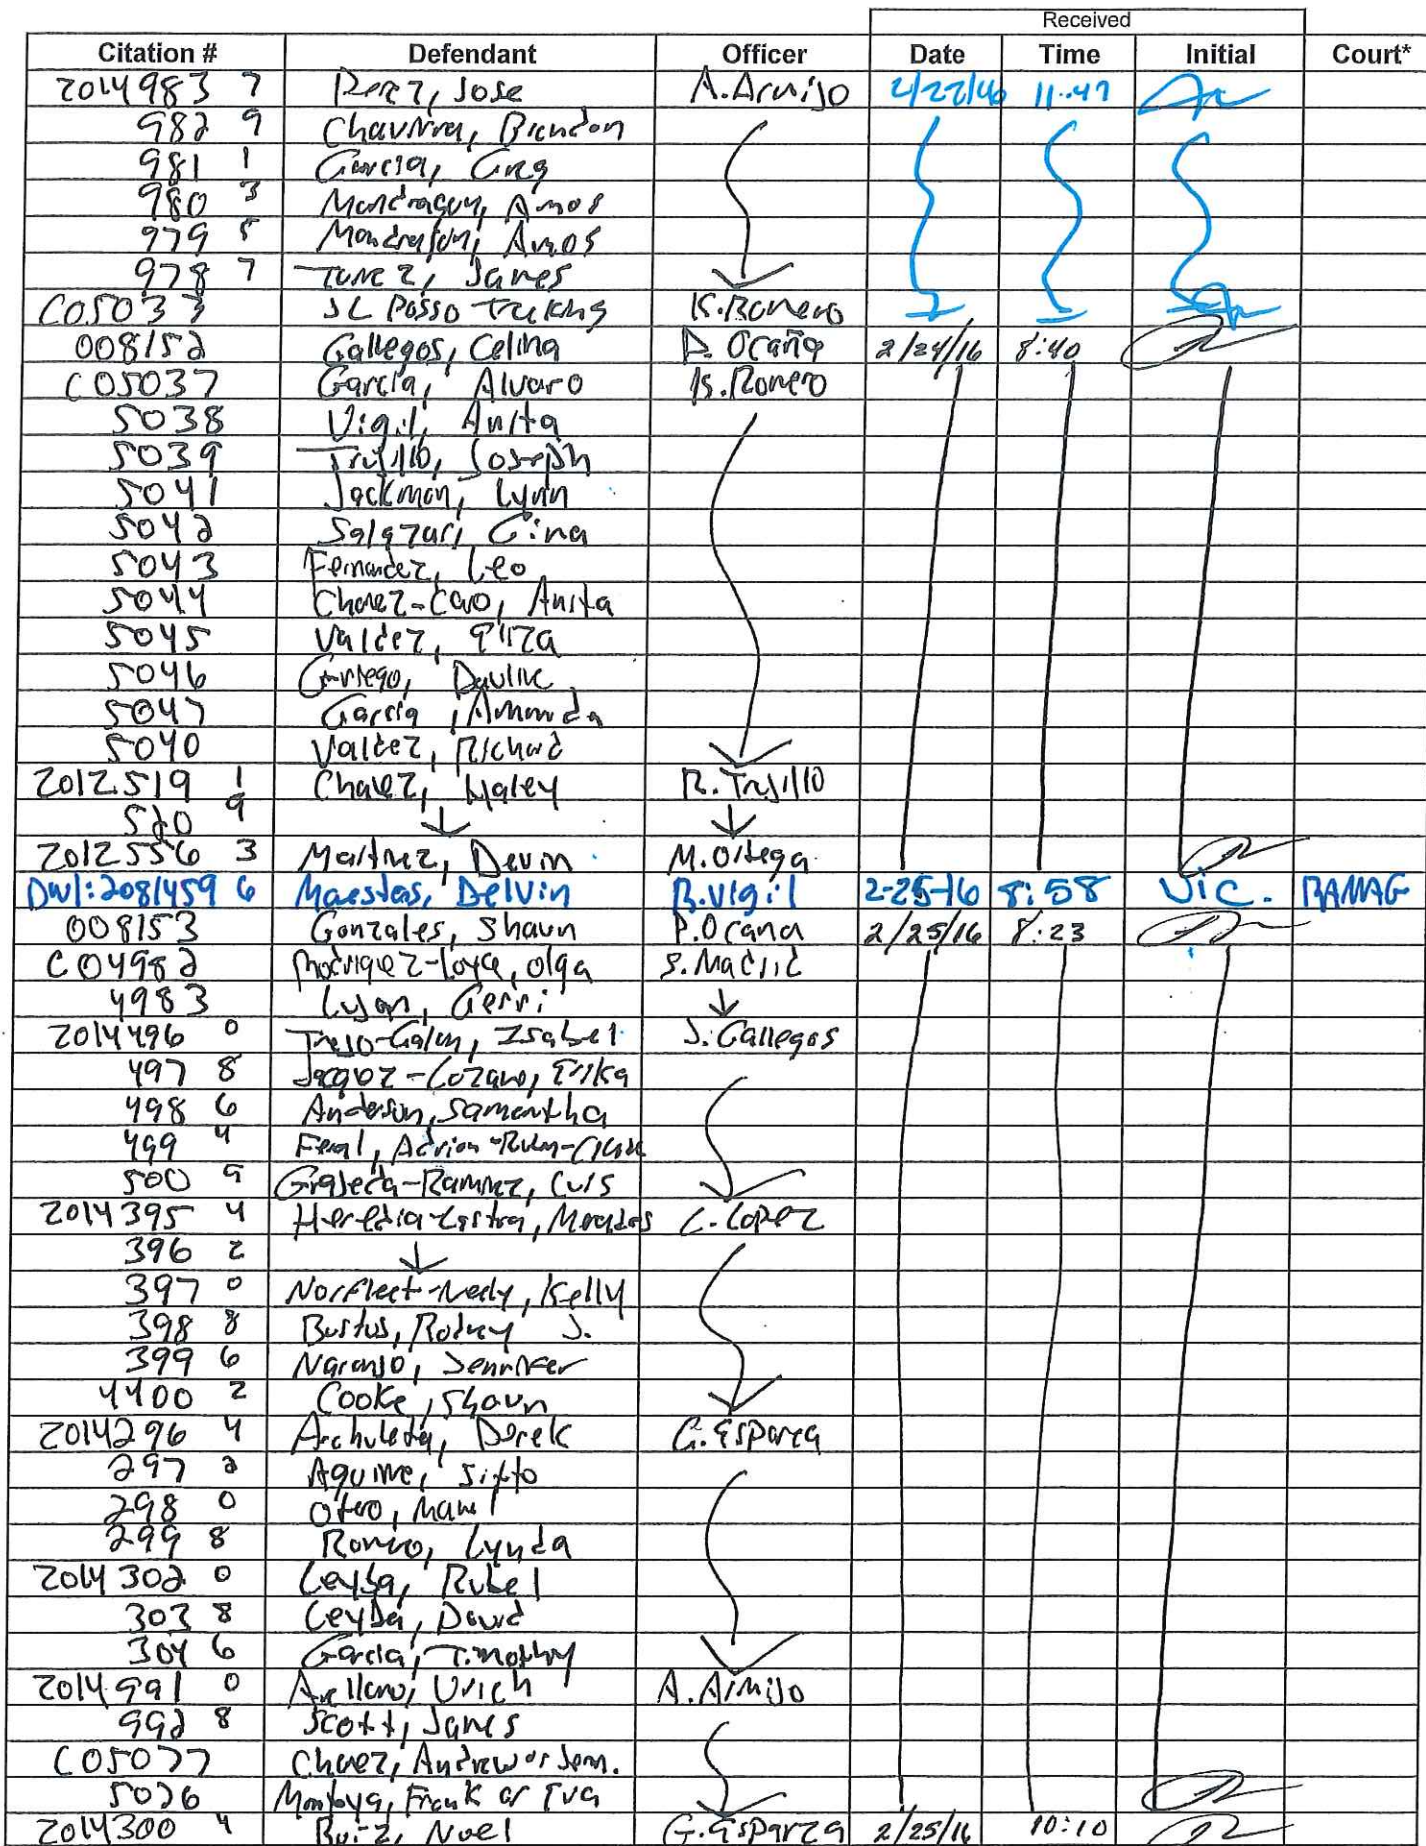 Received
Citation # Defendant Officer Date Time Initial Court*
2014983 7 Perez, Jose A. Armijo 2/22/16 11:47
982 9 Chavirra, Brandon
981 1 Garcia, Greg
980 3 Mondragon, Amos
979 5 Mondragon, Amos
978 7 James
C05033 JL Posso Trucking K. Romero
008152 Gallegos, Celina P. Ocaña 2/24/16 8:40
C05037 Garcia, Alvaro K. Romero
5038 Vigil, Anita
5039 Trujillo, Joseph
5041 Jackman, Lynn
5042 Salazar, Gina
5043 Fernandez, Leo
5044 Anita
5045 Valdez,
5046 Griego,
5047 Garcia, Amanda
5040 Valdez, Richard
2012519 1 Chavez, Haley R. Trujillo
520 9 ↓ ↓
2012556 3 Martinez, Devin M. Ortega
DWI: 2081459 6 Maestas, Delvin B. Vigil 2-25-16 8:58 Vic. RAMAG
008153 Gonzales, Shaun P. Ocana 2/25/16 8:23
C04982 Rodriguez-Loya, Olga S. Madrid
4983 Lujan, Gerri ↓
2014496 0 Isabel J. Gallegos
497 8 Jacquez-Lozano, Erika
498 6 Anderson, Samantha
499 4 Adrian
500 9 Luis
2014395 4 C. Lopez
396 2 ↓
397 0 Norfleet-Neely, Kelly
398 8 Bustos, Rodney J.
399 6 Naranjo, Jennifer
4400 2 Cooke, Shaun
2014296 4 Archuleta, Derek G. Esparza
297 2 Aguirre, Sixto
298 0 Otero,
299 8 Romero, Lynda
2014302 0 Leyba, Rubel
303 8 Leyba, David
304 6 Garcia, Timothy
2014991 0 Arellano, Urich A. Armijo
992 8 Scott, James
C05077 Chavez, Andrew or Jenn.
5026 Montoya, Frank or Eva
2014300 4 Ruiz, Noel G. Esparza 2/25/16 10:10